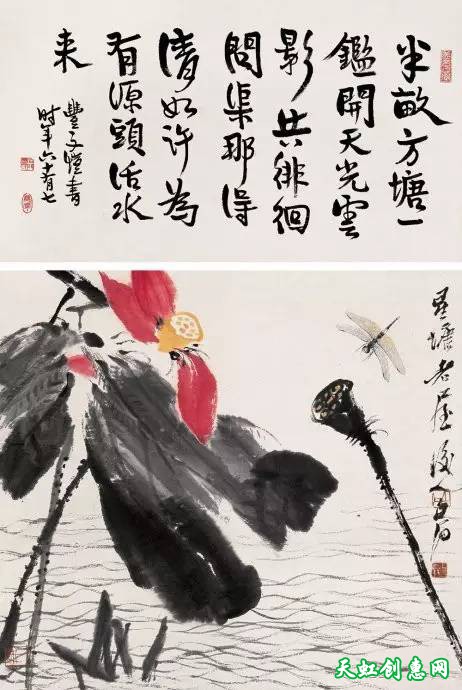 半畝方塘一
鑑開天光雲
影共徘徊
問渠那得
清如許為
有源頭活水
来
豐子愷書
时年六十有七
星塘老屋後人白石
天虹创意网